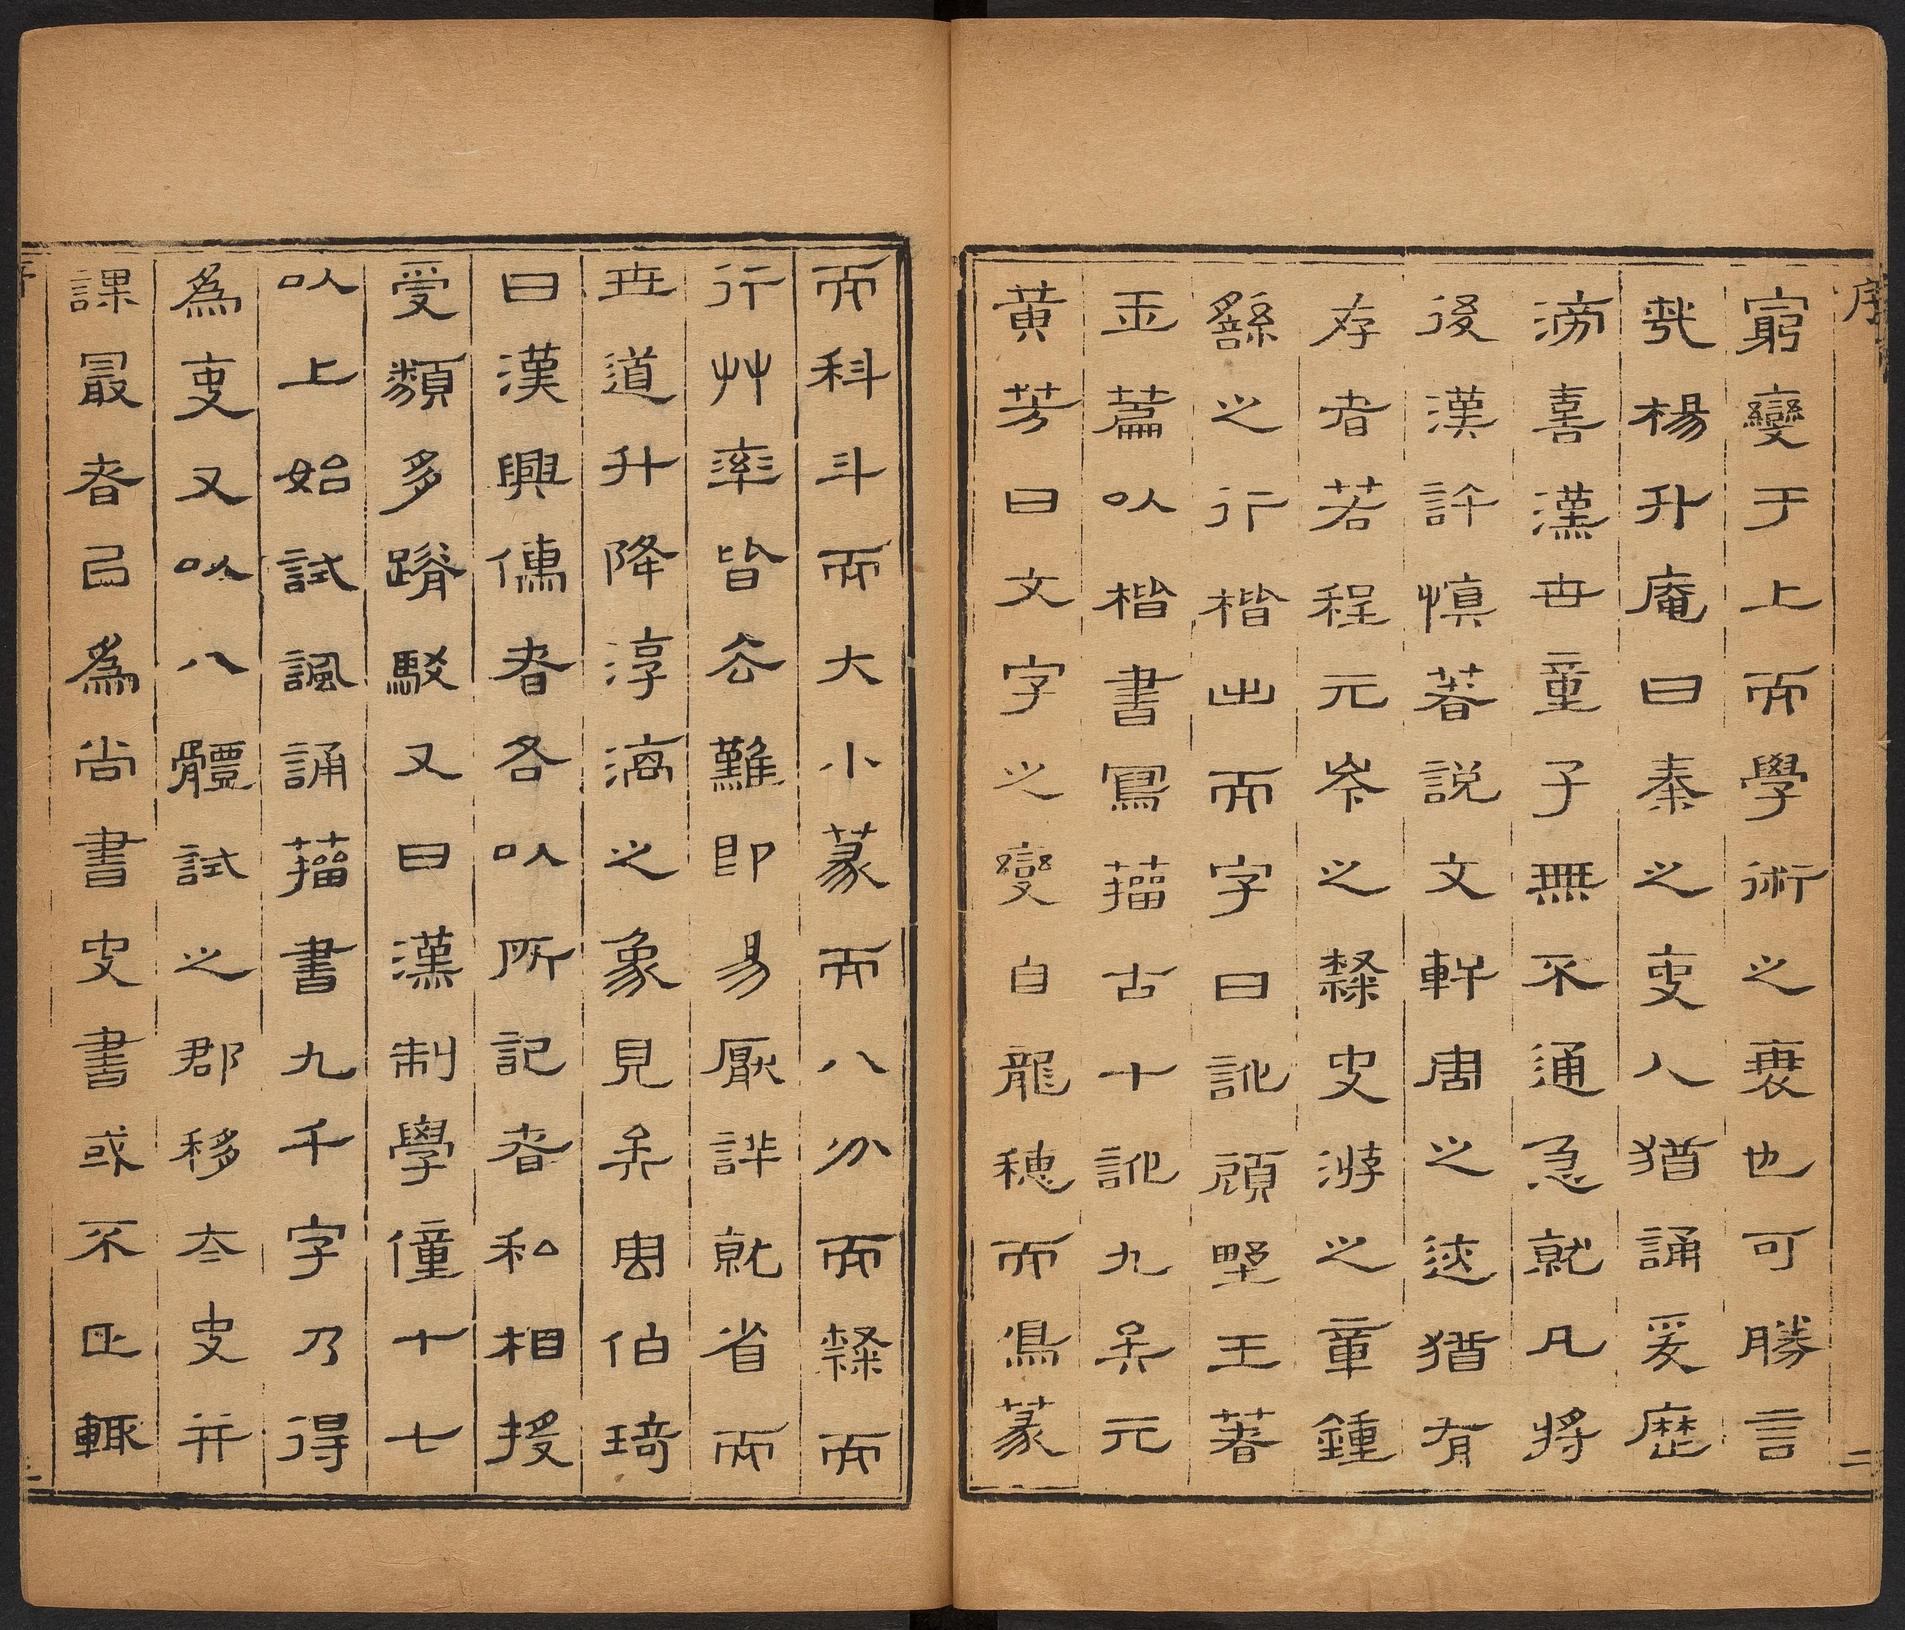 序
窮變于上而學術之衰也可勝言
哉楊升庵曰秦之吏人猶誦爰歷
滂喜漢世童子無不通急就凡將
後漢許慎著說文軒周之迹猶有
存者若程元岑之隸史游之章鍾
繇之行楷出而字曰訛顧野王著
玉篇以楷書寫籀古十訛九矣元
黃芳曰文字之變自龍穗而鳥篆
二
而科斗而大小篆而八分而隸而
行艸率皆厺難即易厭詳就省而
世道升降淳漓之象見矣周伯琦
曰漢興儒者各以所記者私相授
受類多踳駁又曰漢制學僮十七
以上始試諷誦籀書九千字乃得
為吏又以八體試之郡移太史并
課最者以為尚書史書或不正輒